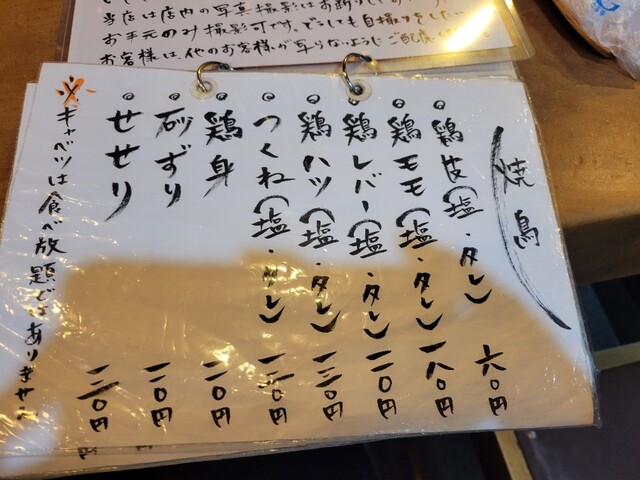 当店は店内の写真撮影はお断りし
お手元のみ撮影可です。どうしても自撮りをしたい
お客様は、他のお客様が写らないようにご配慮
焼鳥
鶏皮(塩・タレ) 六〇円
鶏モモ(塩・タレ) 一八〇円
鶏レバー(塩・タレ) 円
鶏ハツ(塩・タレ) 円
つくね(塩・タレ) 円
鶏身 円
砂ずり 円
せせり 円
※キャベツは食べ放題ではありません